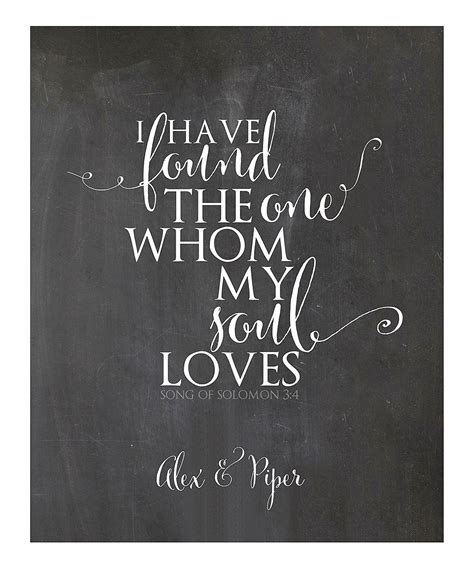 I HAVE
found
THE one
WHOM
MY
soul
LOVES
SONG OF SOLOMON 3:4
Alex & Piper